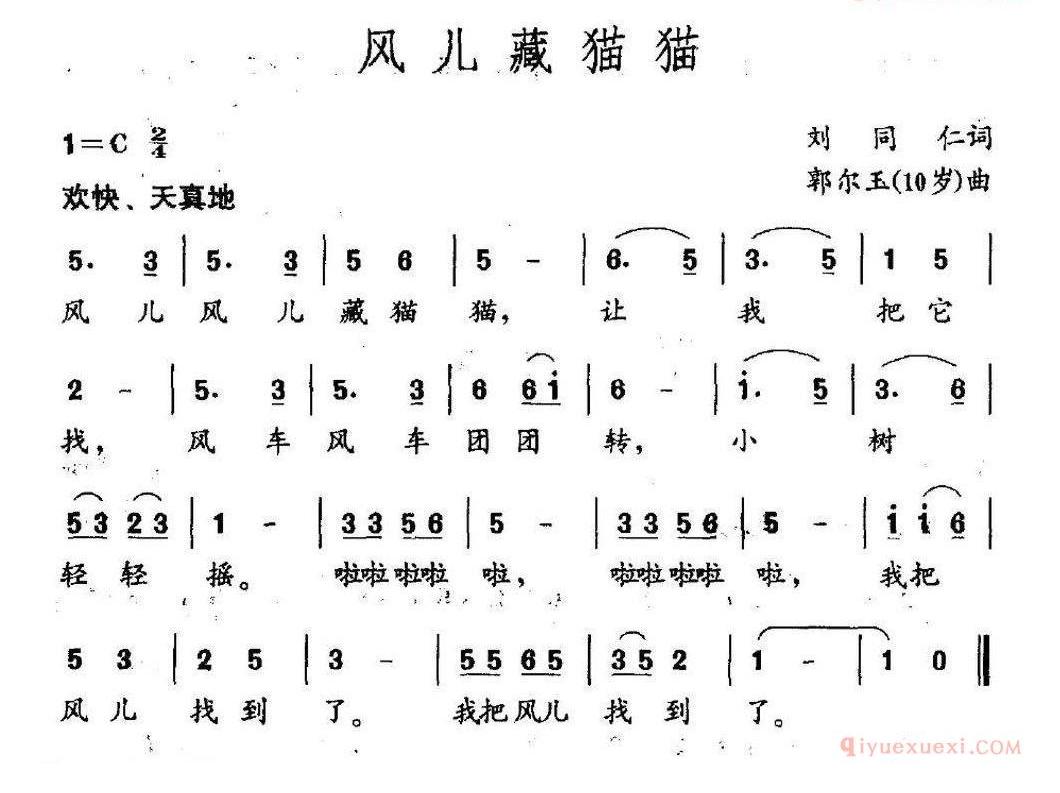 风儿藏猫猫
1=C 2/4
刘同仁词
欢快、天真地
郭尔玉(10岁)曲
5. 3 | 5. 3 | 5 6 | 5 - | 6. 5 | 3. 5 | 1 5 |
风儿风儿藏猫猫,让我把它
2 - | 5. 3 | 5. 3 | 6 6i | 6 - | i. 5 | 3. 6 |
找,风车风车团团转,小树
53 23 | 1 - | 33 56 | 5 - | 33 56 | 5 - | i i6 |
轻轻摇。啦啦啦啦啦,啦啦啦啦啦,我把
5 3 | 2 5 | 3 - | 55 65 | 35 2 | 1 - | 1 0 ‖
风儿找到了。我把风儿找到了。
qiyuexuexi.COM